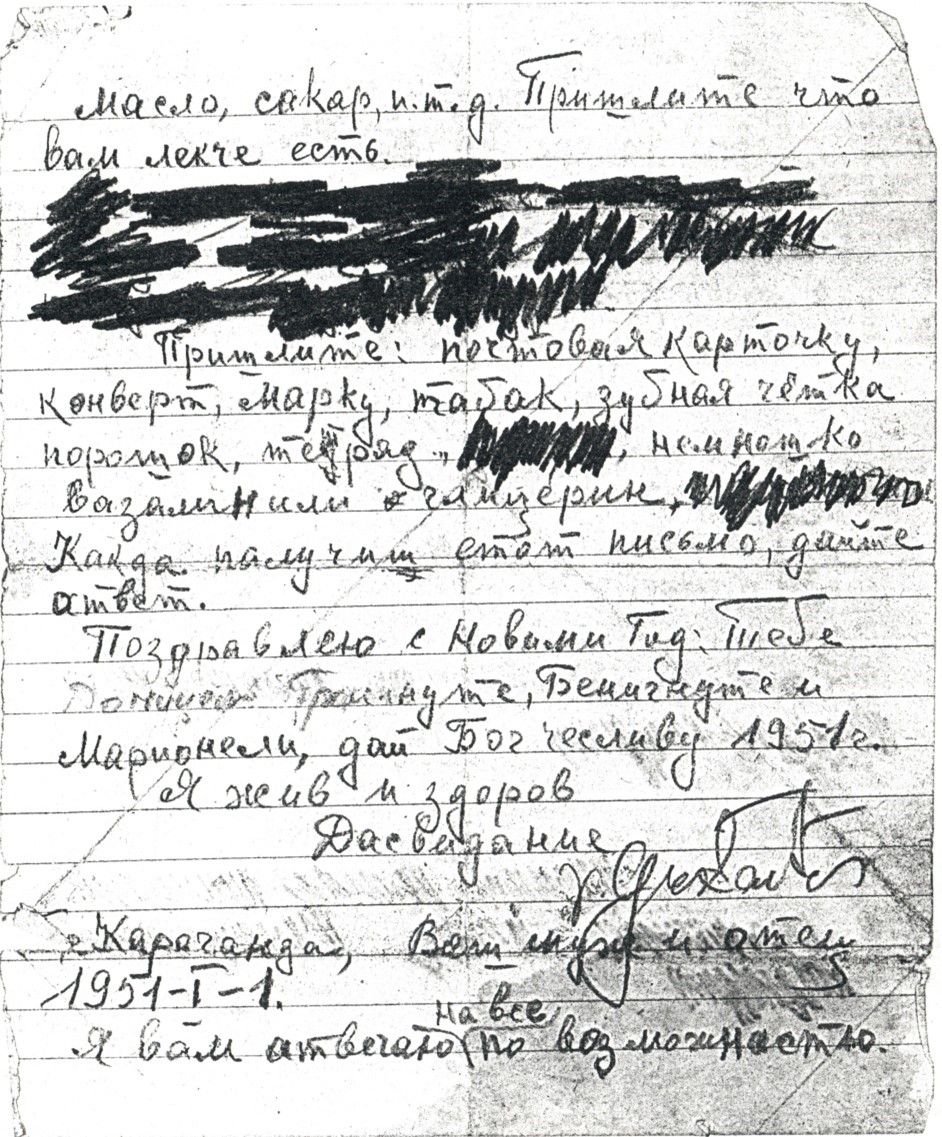 Масло, сакар, и.т.д. Пришлите что
вам лекче есть.
Пришлите: почтовая карточку,
конверт, марку, табак, зубная чётка
порошок, немношко
вазалин или глицерин,
Какда палучиш етот письмо, дайте
атвет.
Поздравлею с Новими Год: Тебе
Бенигнуте и
Марионели, дай Бог чесливу 1951 г.
Я жив и здоров
Дасвидание
г. Караганда, Ваш муж и отец
1951-I-1.
на все
Я вам атвечаю по возможностю.